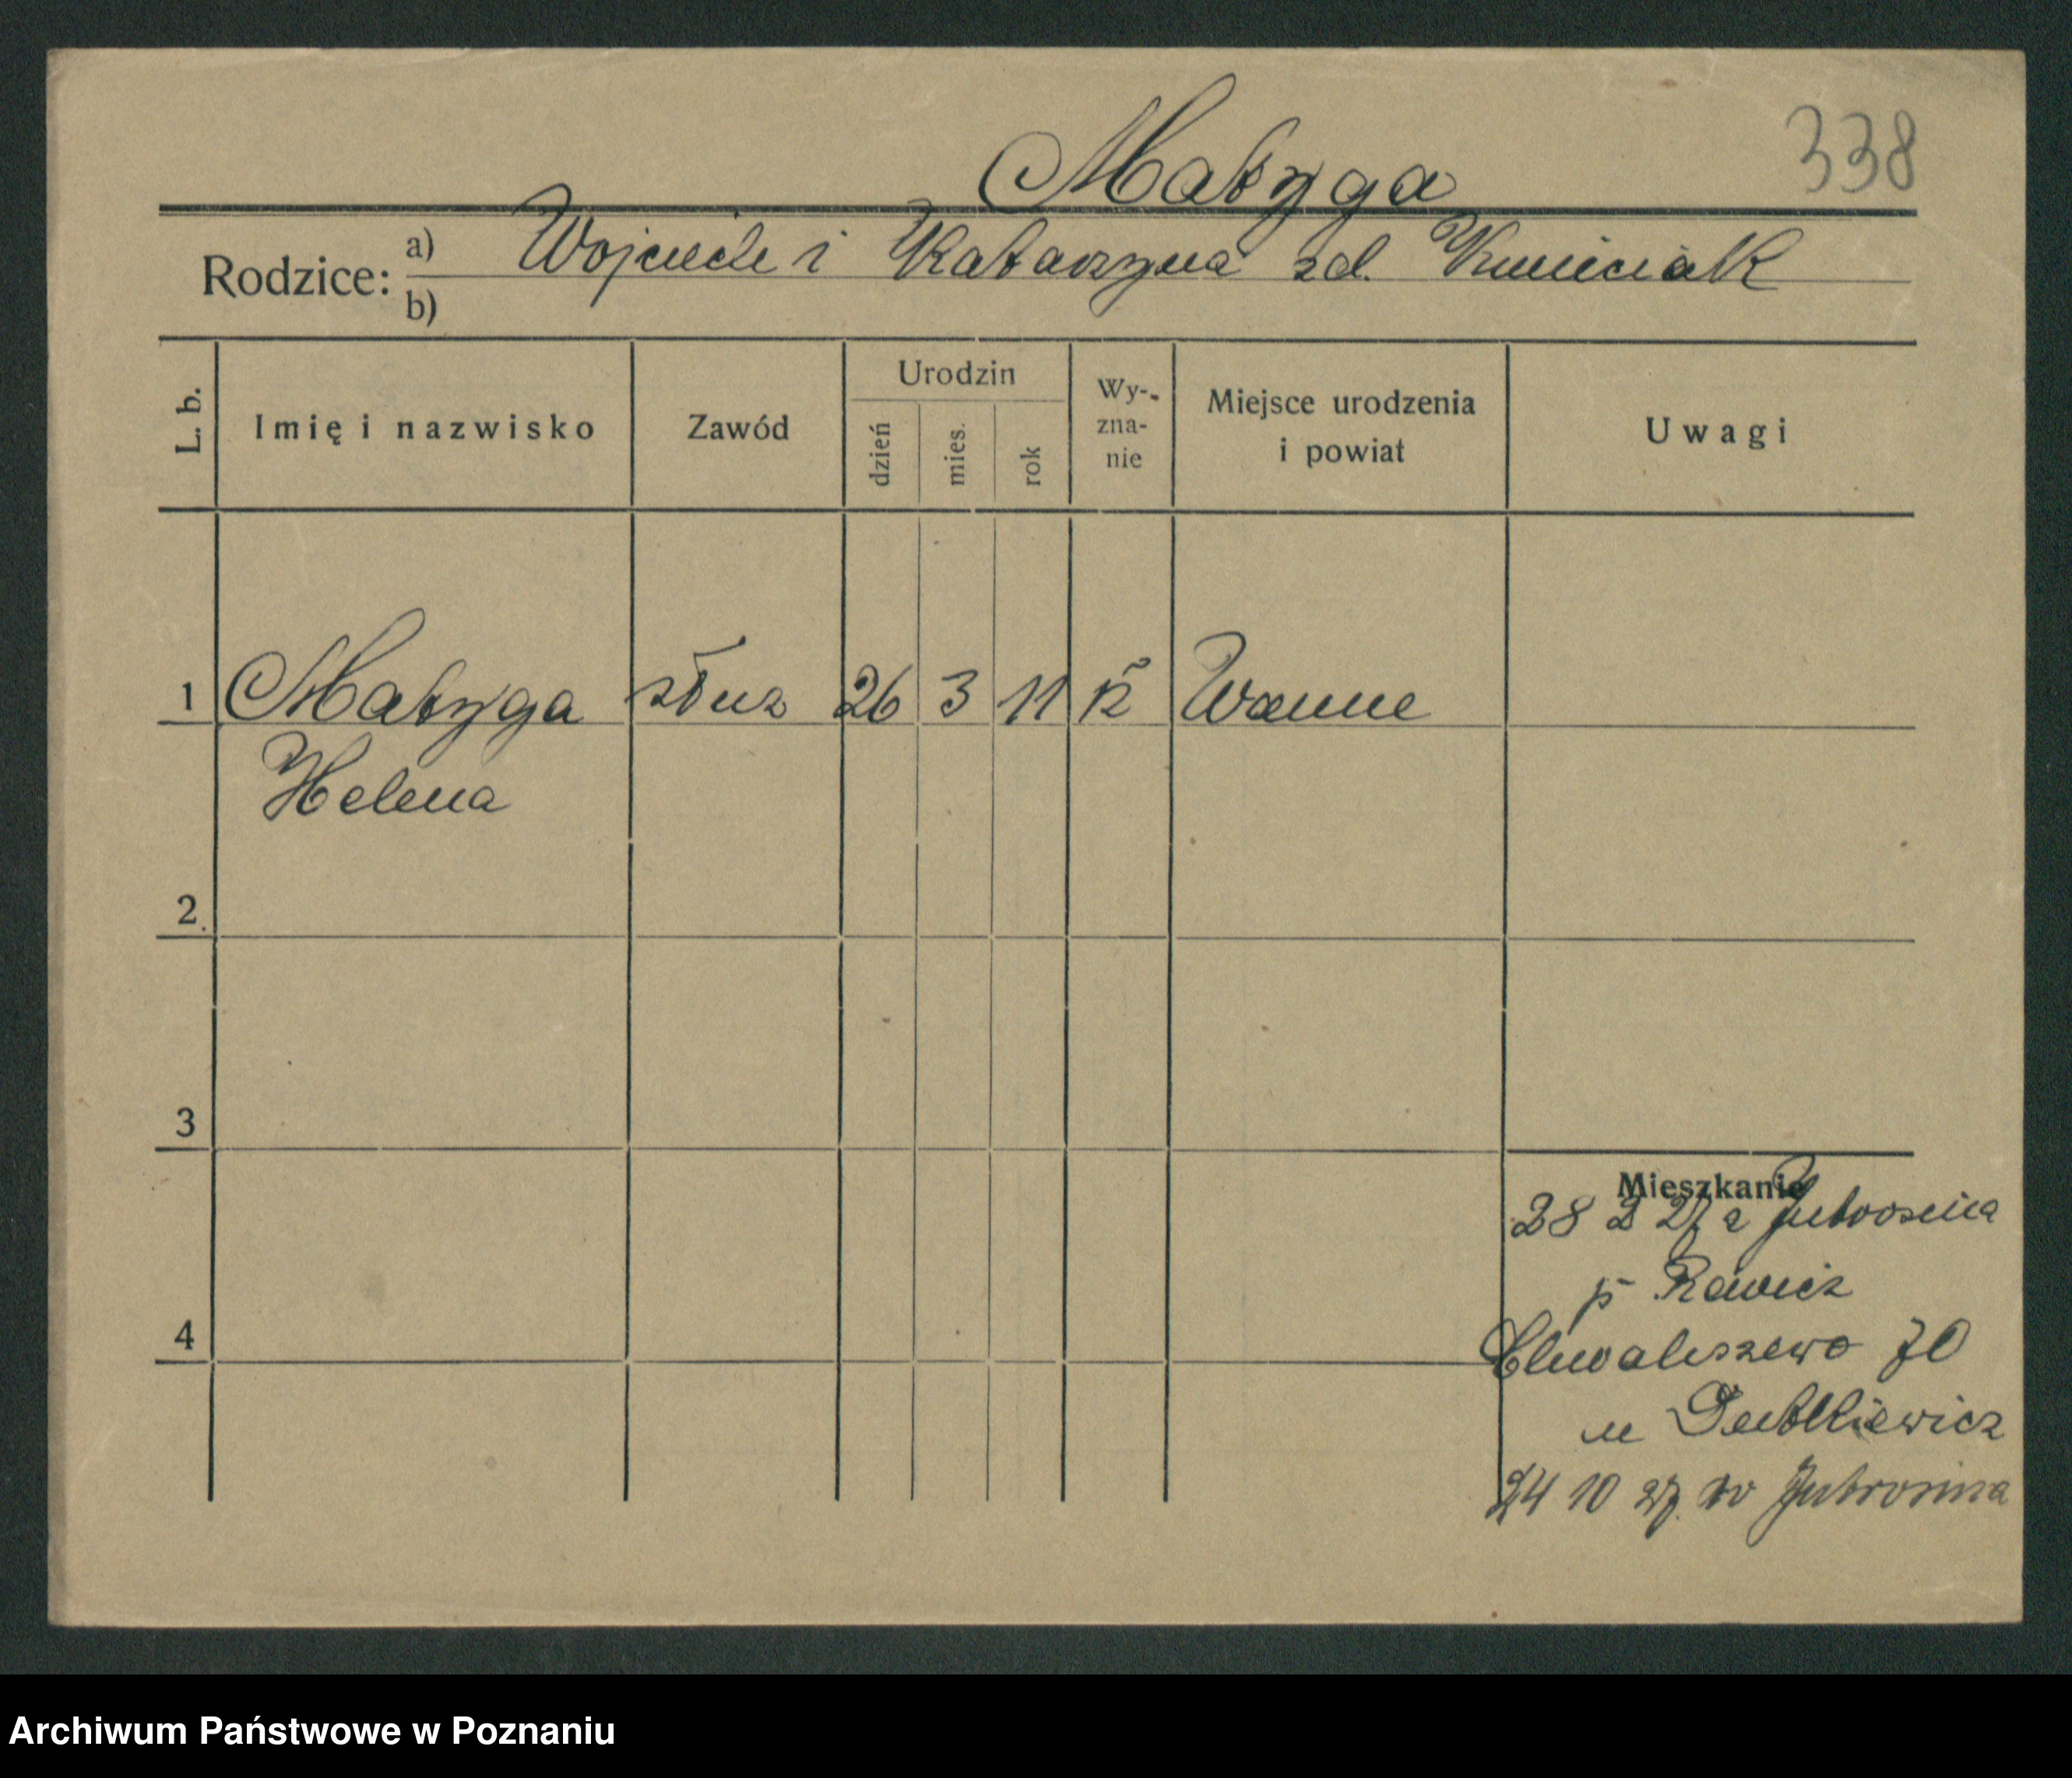 338
Matyga
Rodzice: a) Wojciech i Katarzyna zd. Kmieciak
b)
L. b.
Imię i nazwisko
Zawód
Urodzin
dzień
mies.
rok
Wy-
zna-
nie
Miejsce urodzenia
i powiat
Uwagi
1 Matyga służ 26 3 11 k Wanne
Helena
2
3
Mieszkanie
28 2 27 z Jutrosina
p Rawicz
4
Chwaliszewo 70
u Dutkiewicz
24 10 27 do Jutrosina
Archiwum Państwowe w Poznaniu